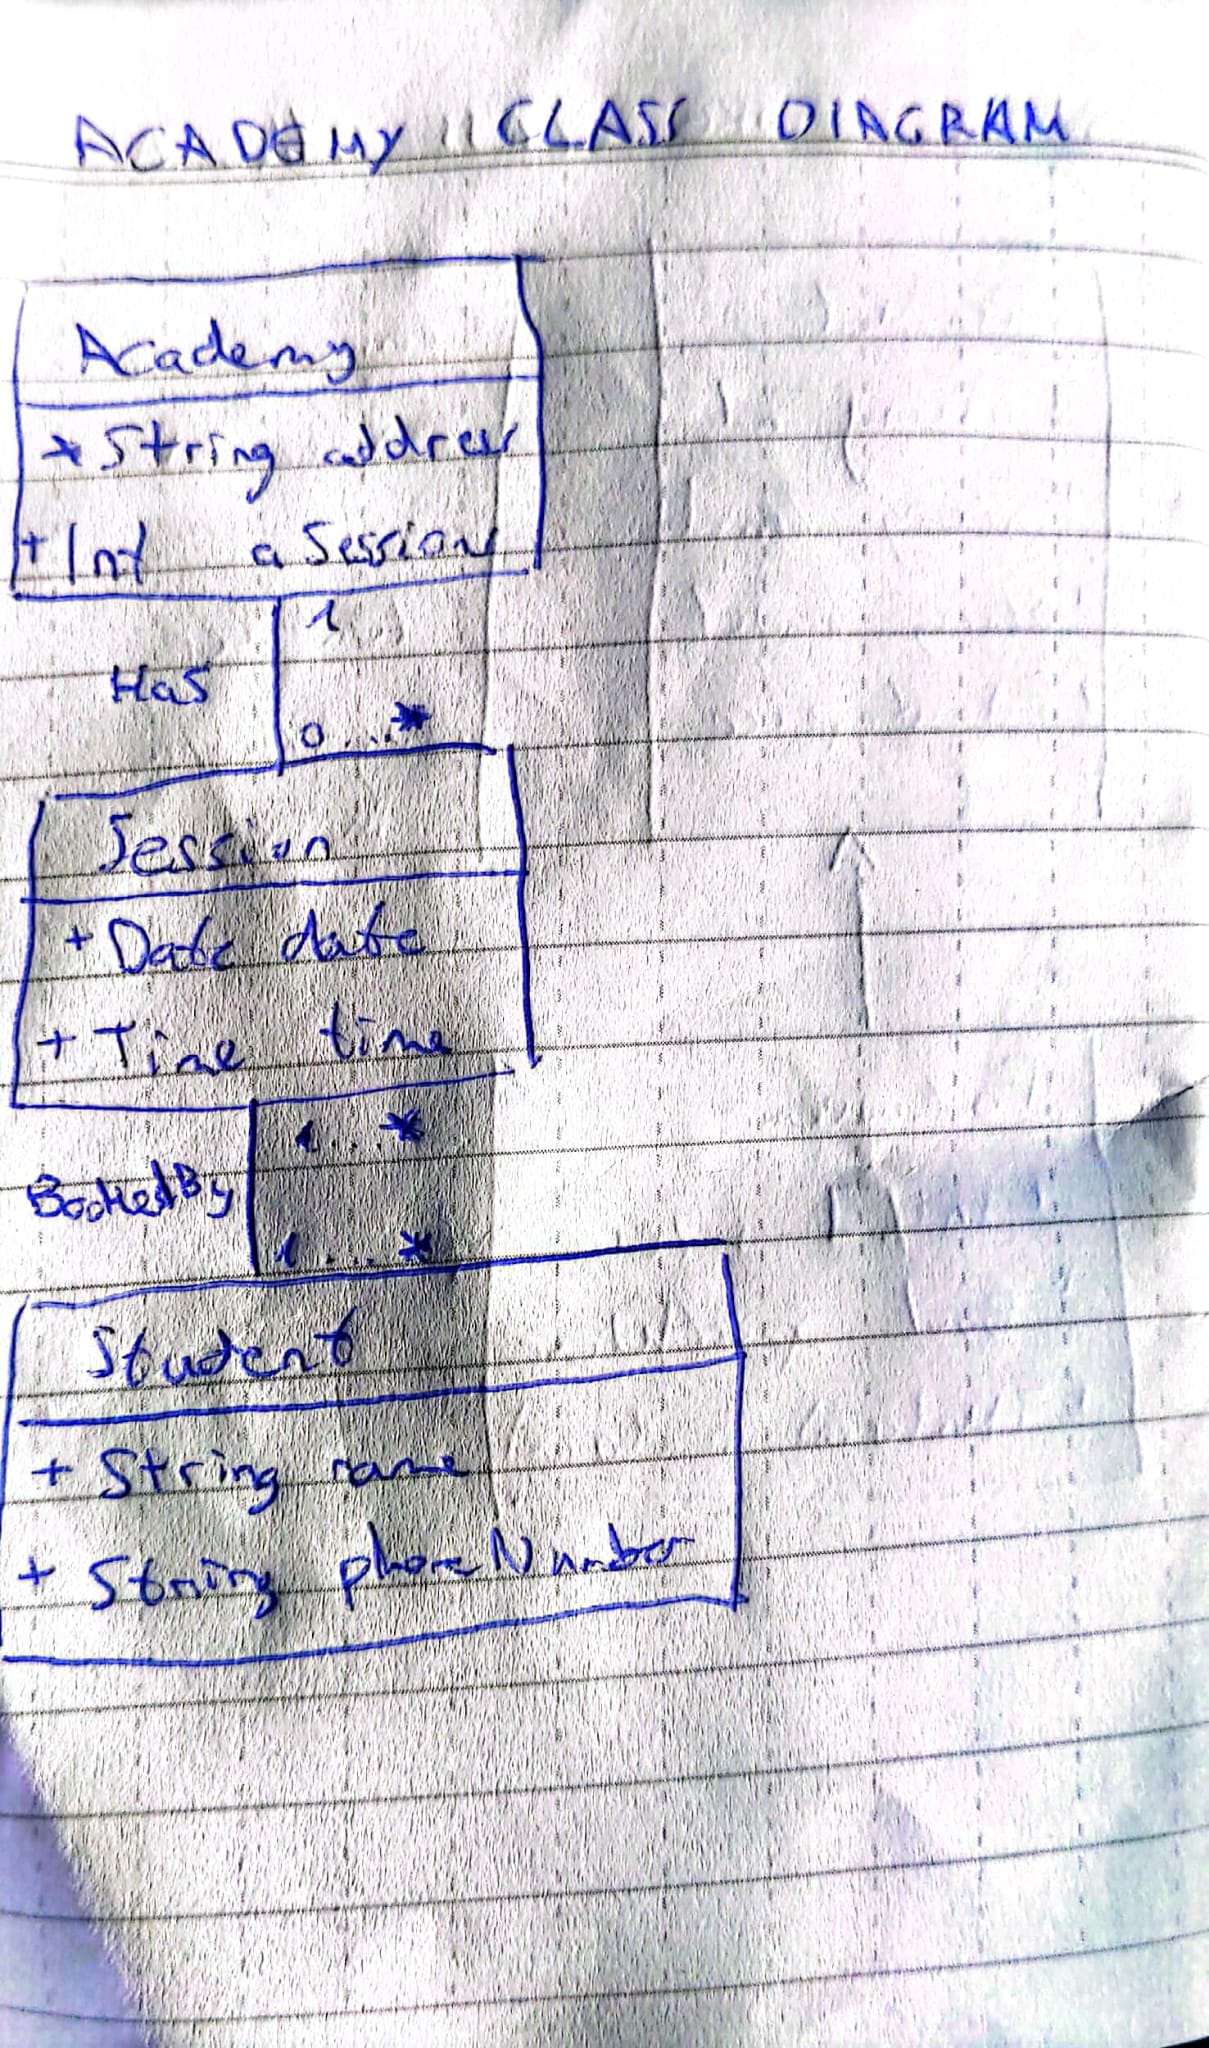 ACADEMY CLASS DIAGRAM
Academy
+ String address
+ Int aSession
1
Has
0...*
Session
+ Date date
+ Time time
1..*
BookedBy
1...*
Student
+ String name
+ String phoneNumber